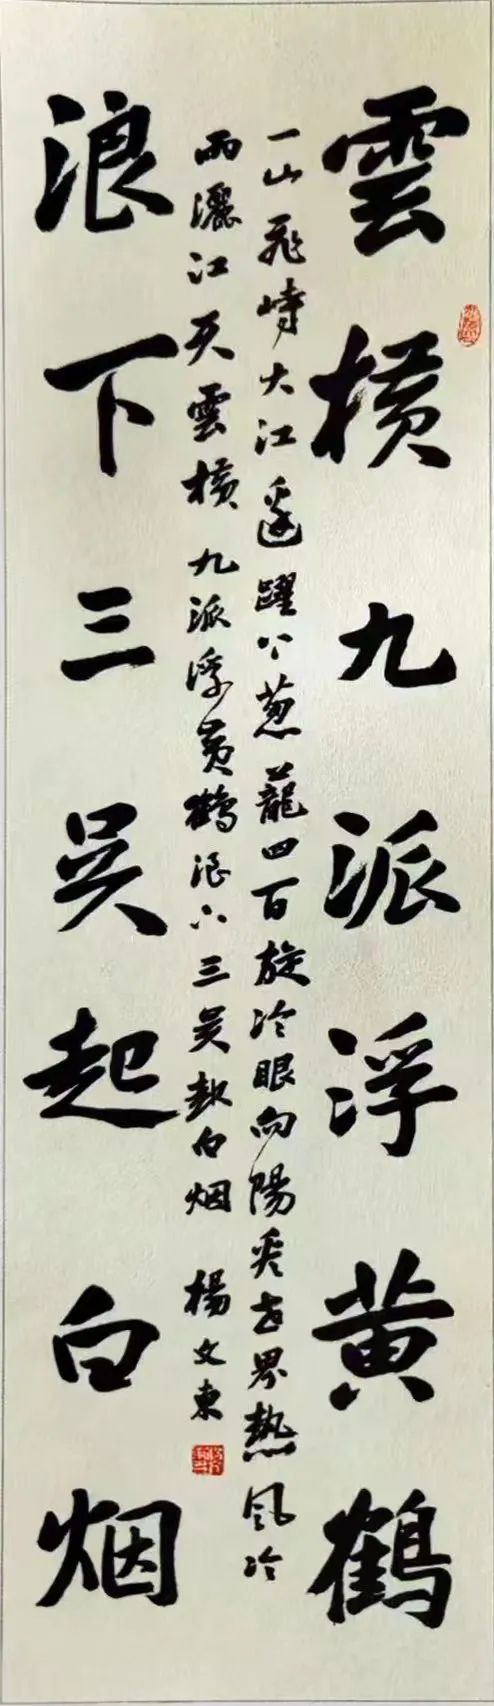 雲横九派浮黄鶴
浪下三吴起白烟
一山飛峙大江邊躍上葱蘢四百旋冷眼向陽看世界熱風冷
雨灑江天雲横九派浮黄鶴浪下三吴起白烟 楊文東